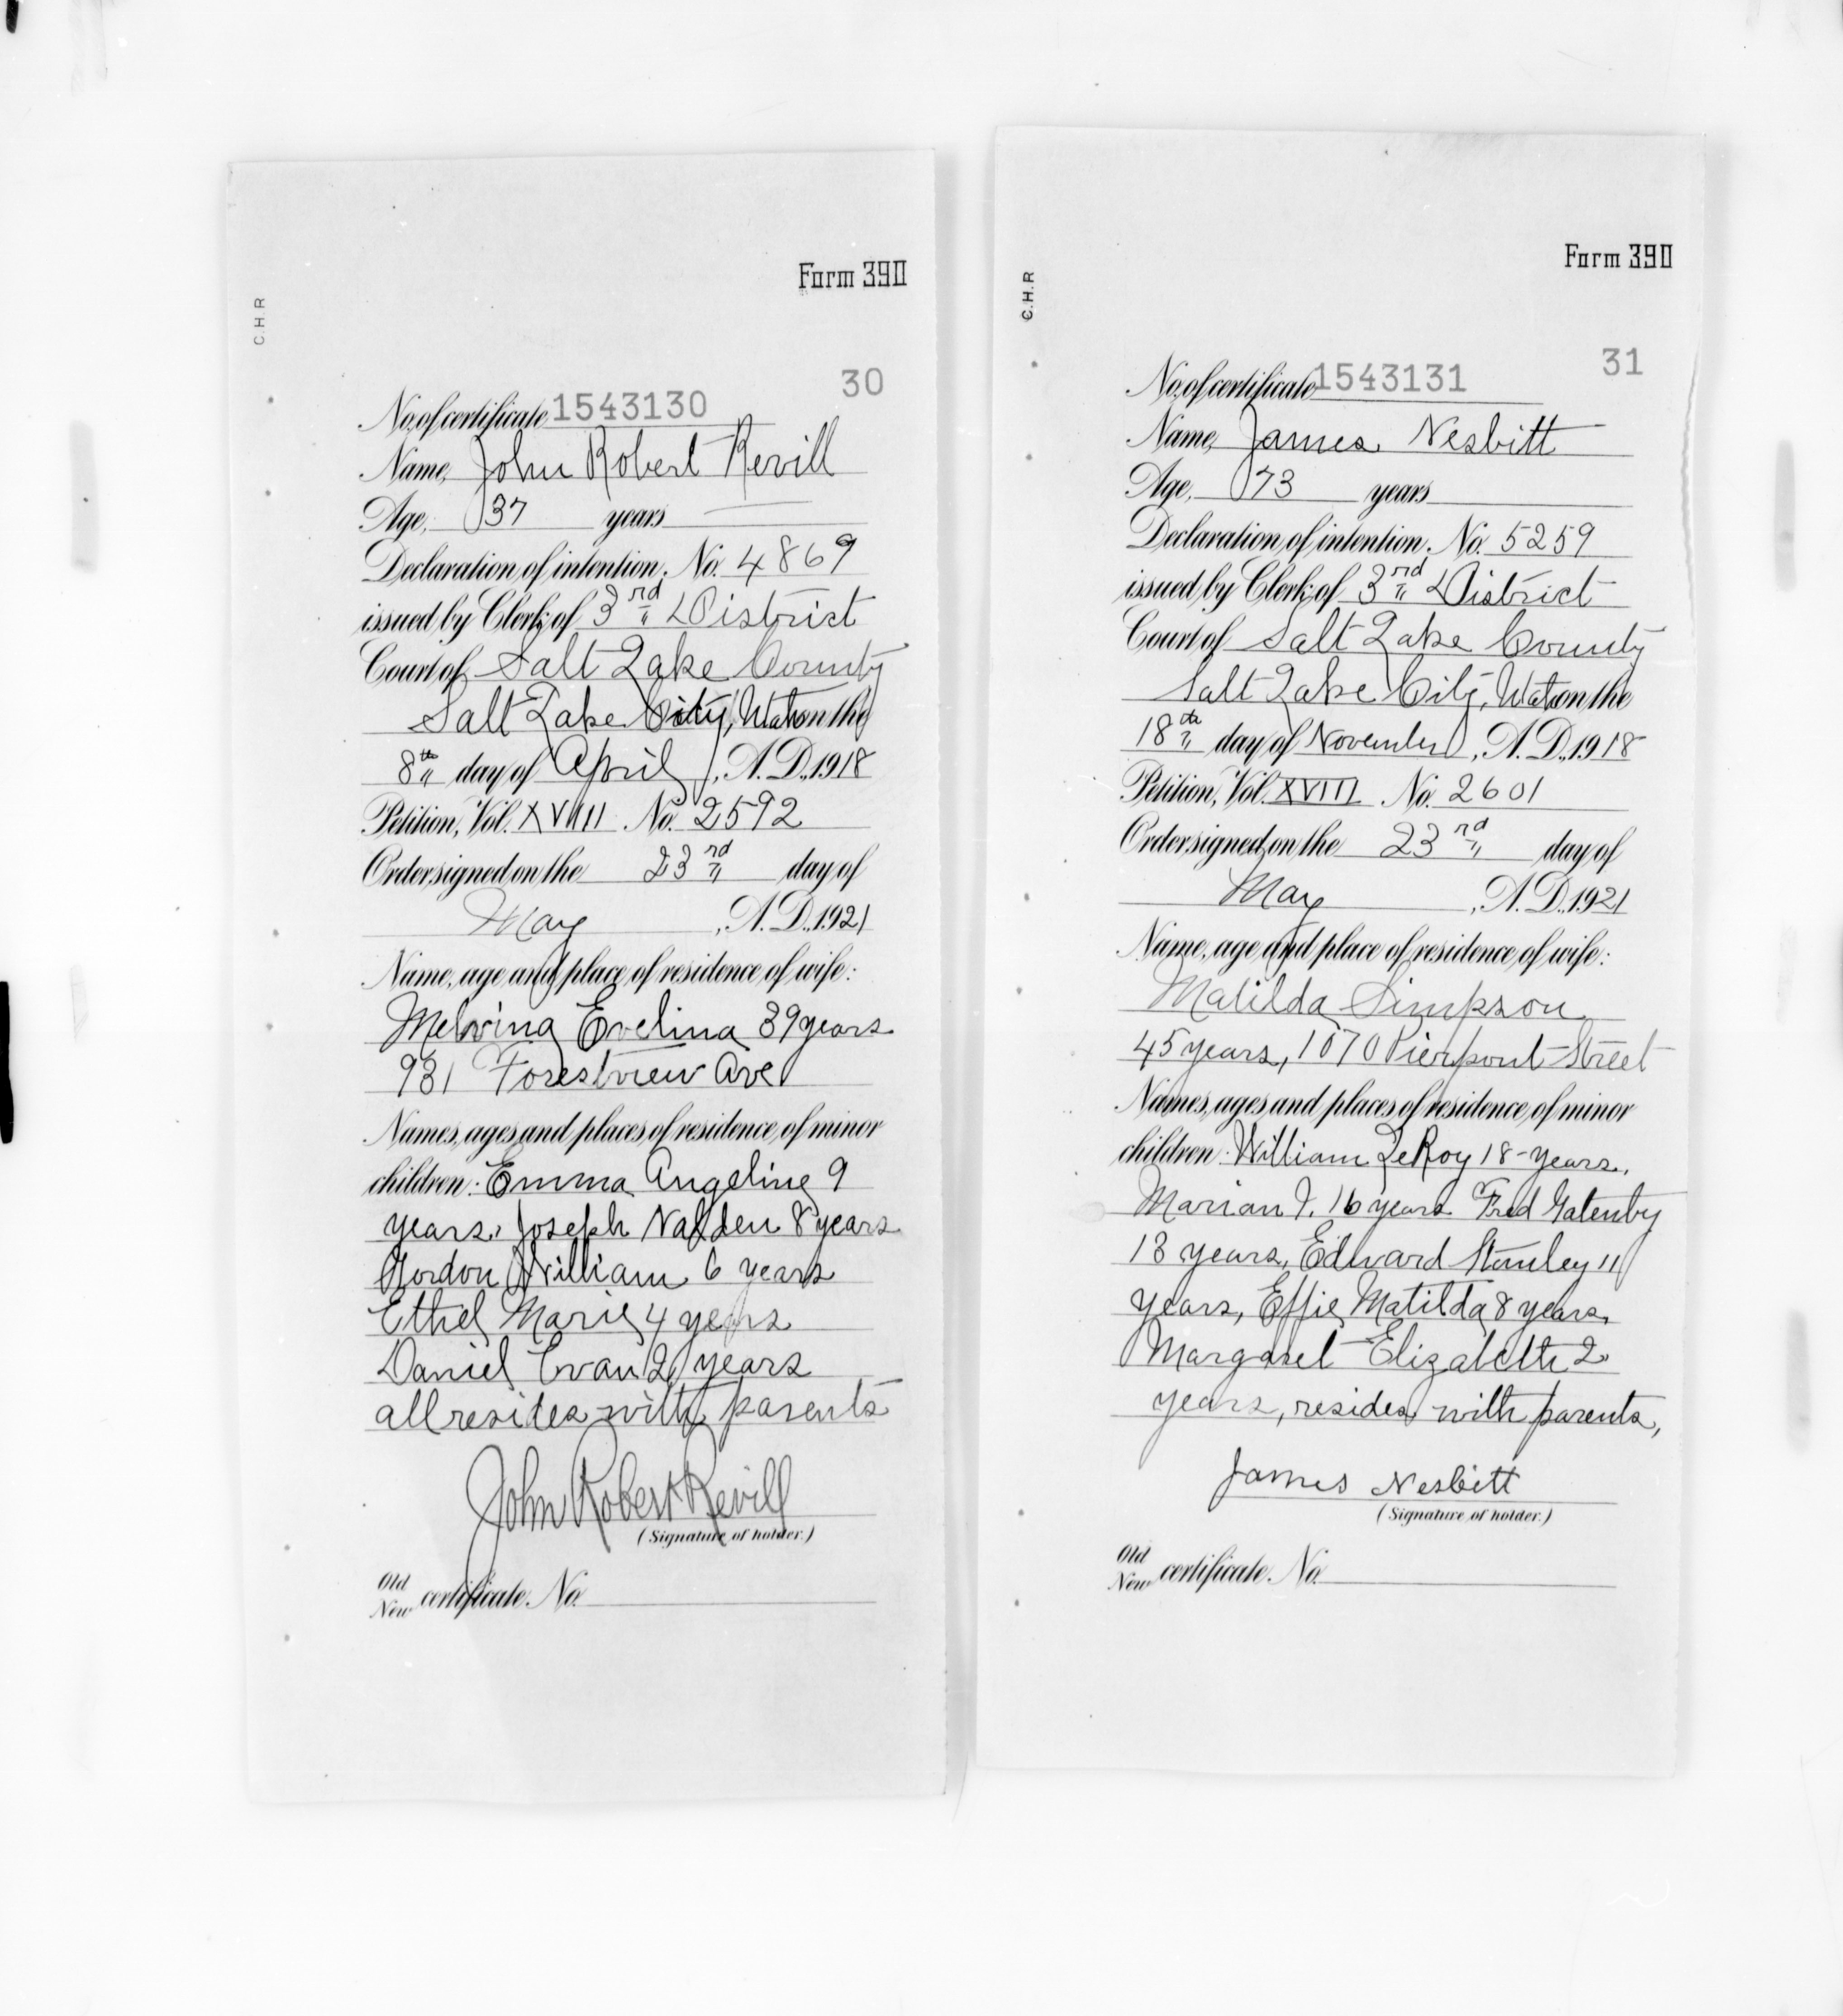 Form 390
C.H.R
30
No. of certificate 1543130
Name, John Robert Revill
Age, 37 years
Declaration of intention. No. 4869
issued by Clerk of 3rd District
Court of Salt Lake County
Salt Lake City, Utah on the
8th day of April, A.D., 1918
Petition, Vol. XVIII No. 2592
Order signed on the 23rd day of
May, A.D., 1921
Name, age and place of residence of wife:
Melvina Evelina 39 years
931 Forestview Ave
Names, ages and places of residence of minor
children: Emma Angeline 9
years, Joseph Nalden 8 years
Gordon William 6 years
Ethel Marie 4 years
Daniel Evan 2 years
all resides with parents
John Robert Revill
(Signature of holder.)
Old
New certificate. No.
Form 390
C.H.R
31
No. of certificate 1543131
Name, James Nesbitt
Age, 73 years
Declaration of intention. No. 5259
issued by Clerk of 3rd District
Court of Salt Lake County
Salt Lake City, Utah on the
18th day of November, A.D., 1918
Petition, Vol. XVIII No. 2601
Order signed on the 23rd day of
May, A.D., 1921
Name, age and place of residence of wife:
Matilda Simpson
45 years, 1070 Pierpont Street
Names, ages and places of residence of minor
children: William LeRoy 18 years,
Marian I. 16 years Fred Gatenby
13 years, Edward Stanley 11
years, Effie Matilda 8 years,
Margaret Elizabeth 2
years, resides with parents,
James Nesbitt
(Signature of holder.)
Old
New certificate. No.